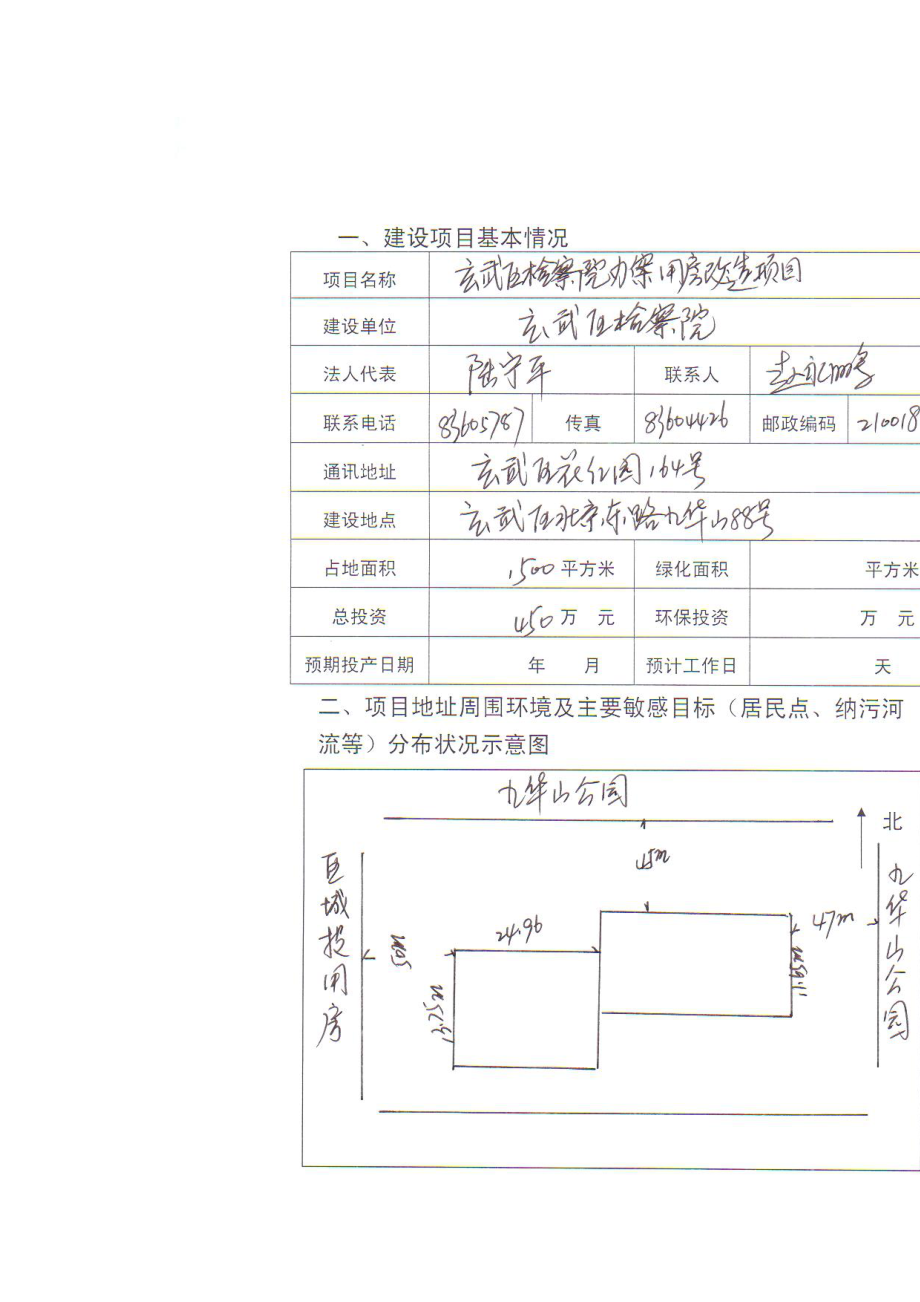 一、建设项目基本情况
项目名称 玄武区检察院办案用房改造项目
建设单位 玄武区检察院
法人代表 陆守平 联系人
联系电话 83605787 传真 83604426 邮政编码 210018
通讯地址 玄武区花红园164号
建设地点 玄武区北京东路九华山88号
占地面积 1500平方米 绿化面积 平方米
总投资 450万 元 环保投资 万 元
预期投产日期 年 月 预计工作日 天
二、项目地址周围环境及主要敏感目标（居民点、纳污河
流等）分布状况示意图
九华山公园
北
45m
区城投用房
九华山公园
47m
24.96
50m